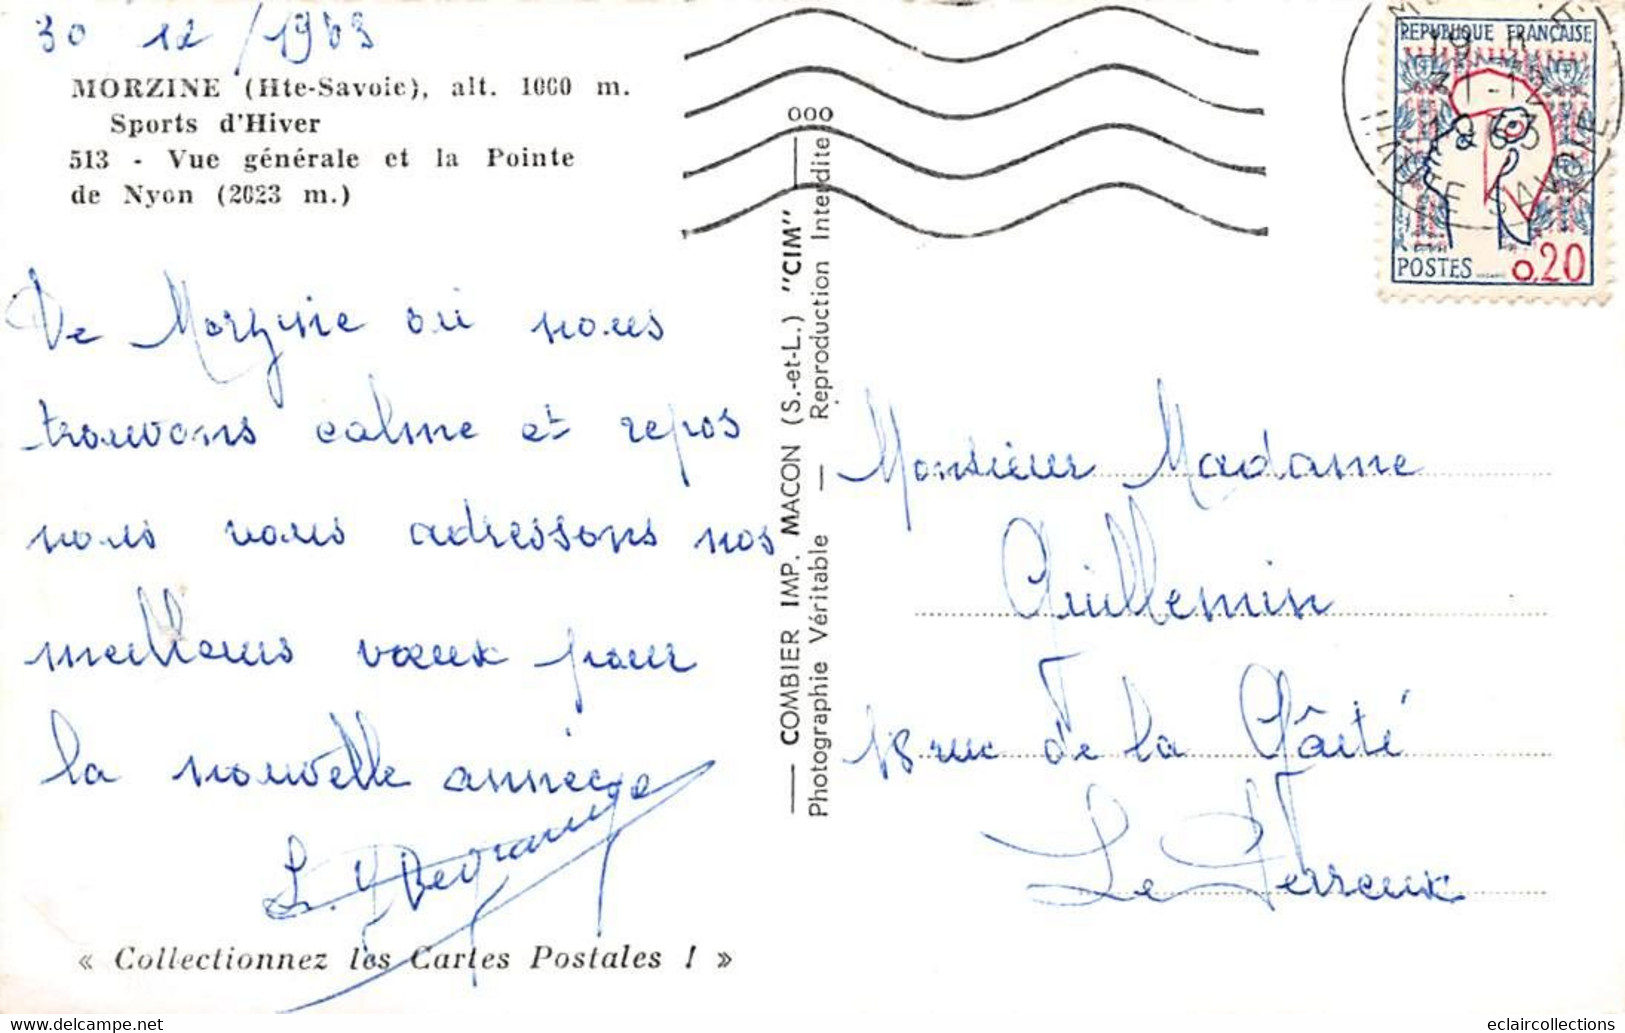 30 12 / 1963
MORZINE (Hte-Savoie), alt. 1000 m.
Sports d'Hiver
513 - Vue générale et la Pointe
de Nyon (2023 m.)
De Morzine où nous
trouvons calme et repos
nous vous adressons nos
meilleurs vœux pour
la nouvelle année
« Collectionnez les Cartes Postales ! »
COMBIER IMP. MACON (S.-et-L.) "CIM"
Photographie Véritable — Reproduction Interdite
REPUBLIQUE FRANÇAISE
POSTES 0.20
19 H
31-12
1963
HAUTE SAVOIE
Monsieur Madame
Guillemin
18 rue de la Gâité
Le Perreux
eclaircollections